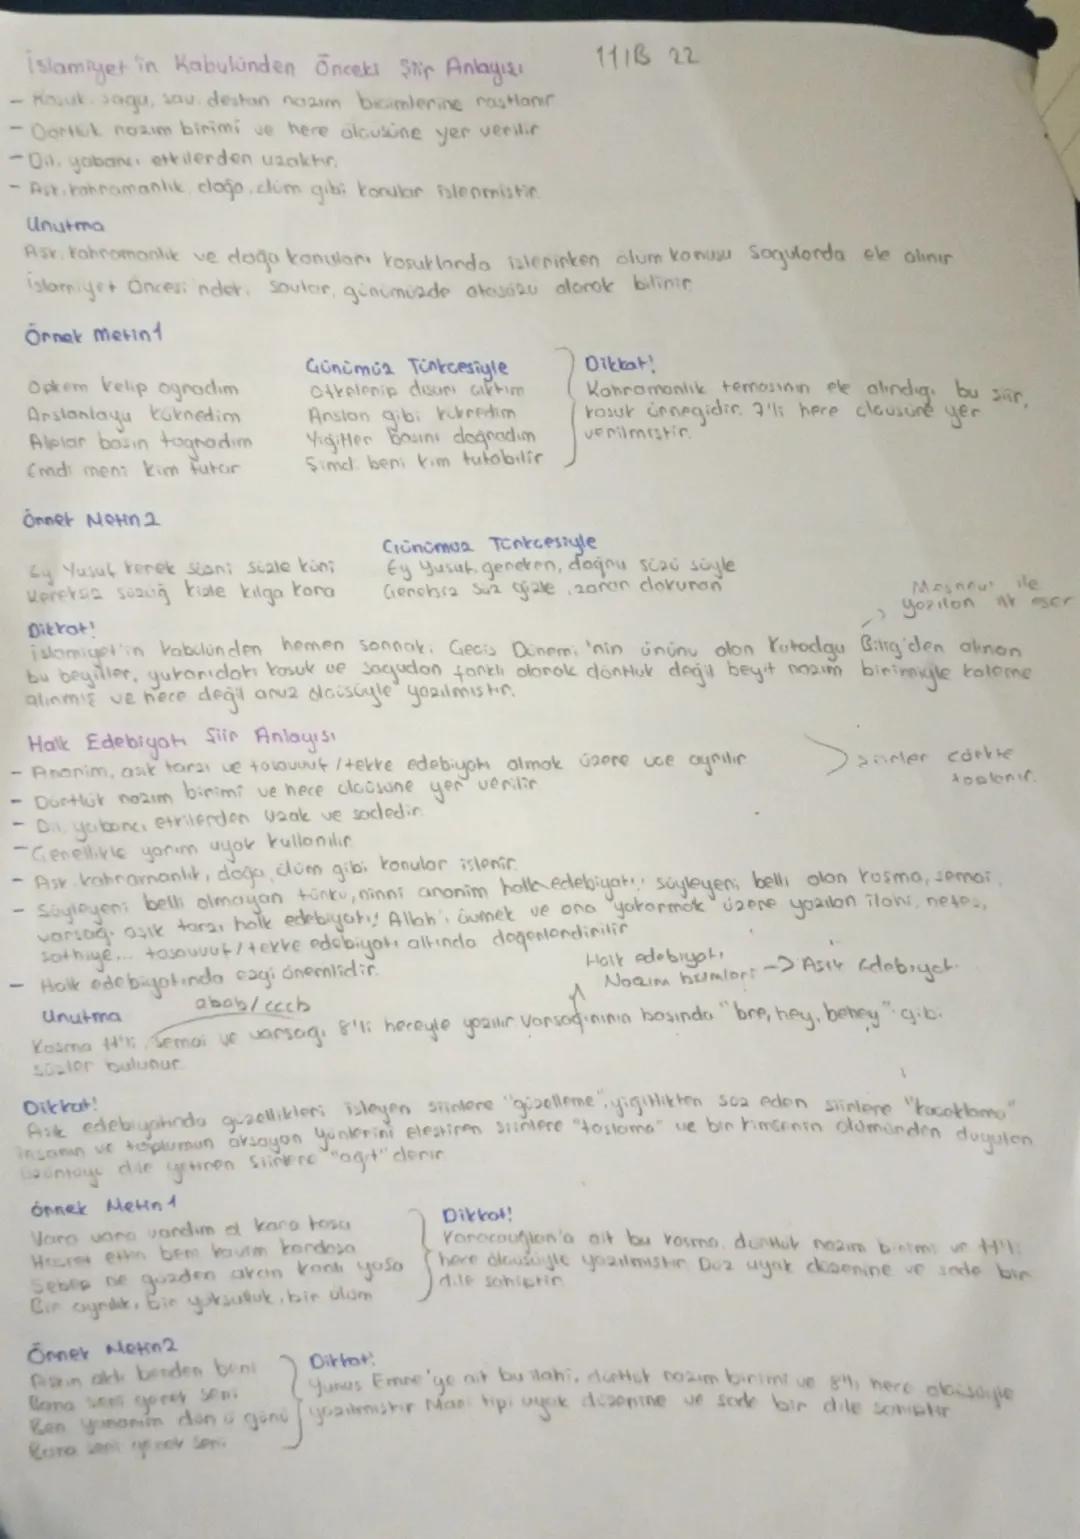 İslamiyet'in Kabulünden Önceki Şiir Anlayışı
11/B 22
- Koşuk, sagu, sav, destan nazım biçimlerine rastlanır
- Dörtlük nazım birimi ve hece ölçüsüne yer verilir
- Dil, yabancı etkilerden uzaktır.
- Aşk, kahramanlık, doğa, ölüm gibi konular işlenmiştir.
Unutma
Aşk, kahramanlık ve doğa konuları koşuklarda işlenirken ölüm konusu sagularda ele alınır
İslamiyet Öncesi'ndeki savlar, günümüzde atasözü olarak bilinir
Örnek Metin 1
Öpkem kelip ogradım
Arslanlayu kükredim
Alplar başın togradım
Emdi meni kim tutar
Günümüz Türkçesiyle
Öfkelenip dışarı çıktım
Arslan gibi kükredim
Yiğitler başını doğradım
Şimdi beni kim tutabilir
Dikkat!
Kahramanlık temasının ele alındığı bu şiir,
koşuk örneğidir. 7'li hece ölçüsüne yer
verilmiştir.
Örnek Metin 2
Ey Yusuf kerek sözni sözle köni
Kereksiz sözüg kizle kılga kora
Günümüz Türkçesiyle
Ey Yusuf, gereken, doğru sözü söyle
Gereksiz söz gizle, zararı dokunan
Mesnevi ile
yazılan ilk eser
Dikkat!
İslamiyet'in kabulünden hemen sonraki Geçiş Dönemi'nin ürünü olan Kutadgu Bilig'den alınan
bu beyitler, yukarıdaki koşuk ve sagudan farklı olarak dörtlük değil beyit nazım birimiyle kaleme
alınmış ve hece değil aruz ölçüsüyle yazılmıştır.
Halk Edebiyatı Şiir Anlayışı
- Anonim, aşık tarzı ve tasavvuf/tekke edebiyatı olmak üzere üçe ayrılır
şiirler cönkte
toplanır.
- Dörtlük nazım birimi ve hece ölçüsüne yer verilir
- Dil yabancı etkilerden uzak ve sadedir.
- Genellikle yarım uyak kullanılır
- Aşk, kahramanlık, doğa, ölüm gibi konular işlenir.
- Söyleyeni belli olmayan türkü, ninni anonim halk edebiyatı; söyleyeni belli olan koşma, semai,
varsağı aşık tarzı halk edebiyatı; Allah'ı övmek ve ona yakarmak üzere yazılan ilahi, nefes,
şathiye... tasavvuf/tekke edebiyatı altında değerlendirilir
- Halk edebiyatında ezgi önemlidir.
Halk edebiyatı
Nazım birimleri -> Aşık Edebiyatı
Unutma
abab/cccb
Koşma 11'li, Semai ve varsağı 8'li heceyle yazılır Varsağının başında "bre, hey, behey" gibi
sözler bulunur
Dikkat!
Aşık edebiyatında güzellikleri işleyen şiirlere "güzelleme", yiğitlikten söz eden şiirlere "koçaklama"
insanın ve toplumun aksayan yönlerini eleştiren şiirlere "taşlama" ve bir kimsenin ölümünden duyulan
üzüntüyü dile getiren şiirlere "ağıt" denir
Örnek Metin 1
Vara vara vardım ol kara taşa
Hasret ettin beni kavim kardaşa
Sebep ne gözden akan kanlı yaşa
Bir ayrılık, bir yoksulluk, bir ölüm
Dikkat!
Karacaoğlan'a ait bu koşma, dörtlük nazım birimi ve 11'li
hece ölçüsüyle yazılmıştır. Düz uyak düzenine ve sade bir
dile sahiptir.
Örnek Metin 2
Aşkın aldı benden beni
Bana seni gerek seni
Ben yanarım dün ü günü
Bana seni gerek seni
Dikkat!
Yunus Emre'ye ait bu ilahi, dörtlük nazım birimi ve 8'li hece ölçüsüyle
yazılmıştır Mani tipi uyak düzenine ve sade bir dile sahiptir